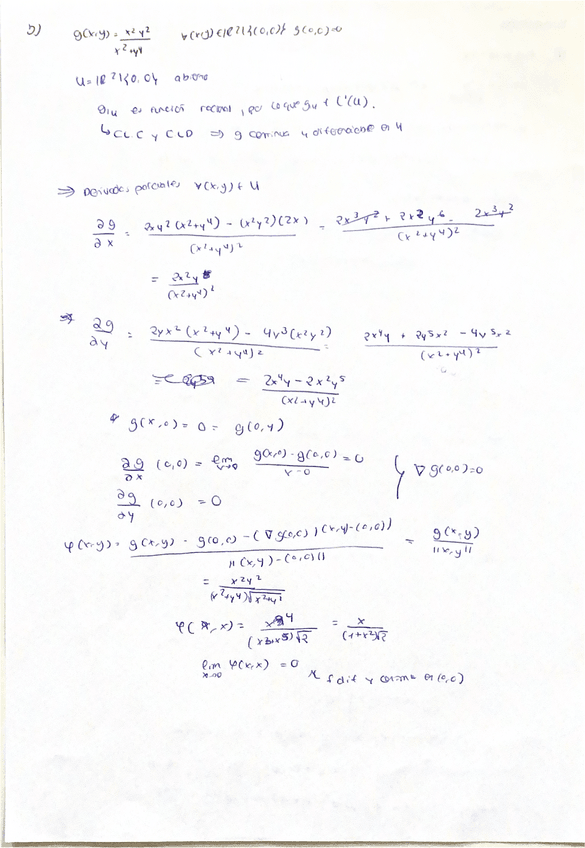 5) g(x,y) = x²y² / x²+y⁴ ∀(x,y)∈ℝ²\{(0,0)} g(0,0)=0
U = ℝ²\{0,0} abierto
g|U es función racional, por lo que g|U ∈ C¹(U).
↳ CLC y CLD ⇒ g continua y diferenciable en U
⇒ Derivadas parciales ∀(x,y)∈U
∂g/∂x = 2xy²(x²+y⁴) - (x²y²)(2x) / (x²+y⁴)² = 2x³y² + 2x2y⁶ - 2x³y² / (x²+y⁴)²
= 2x2y / (x²+y⁴)²
⇒ ∂g/∂y = 2yx²(x²+y⁴) - 4y³(x²y²) / (x²+y⁴)² = 2x⁴y + 2y⁵x² - 4y⁵x² / (x²+y⁴)²
= 2x⁴y - 2x²y⁵ / (x²+y⁴)²
* g(x,0) = 0 = g(0,y)
∂g/∂x (0,0) = lím x→0 g(x,0)-g(0,0) / x-0 = 0
∇g(0,0)=0
∂g/∂y (0,0) = 0
φ(x,y) = g(x,y) - g(0,0) - (∇g(0,0))(x,y)-(0,0)) / ||(x,y)-(0,0)|| = g(x,y) / ||x,y||
= x²y² / (x²+y⁴)√x²+y²
φ(x,x) = x⁴ / (x³+x⁵)√2 = x / (1+x²)√2
lím x→0 φ(x,x) = 0 f dif y continua en (0,0)